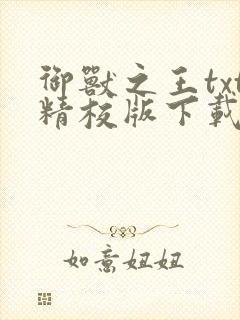 御獸之王txt
精校版下載
如意妞妞